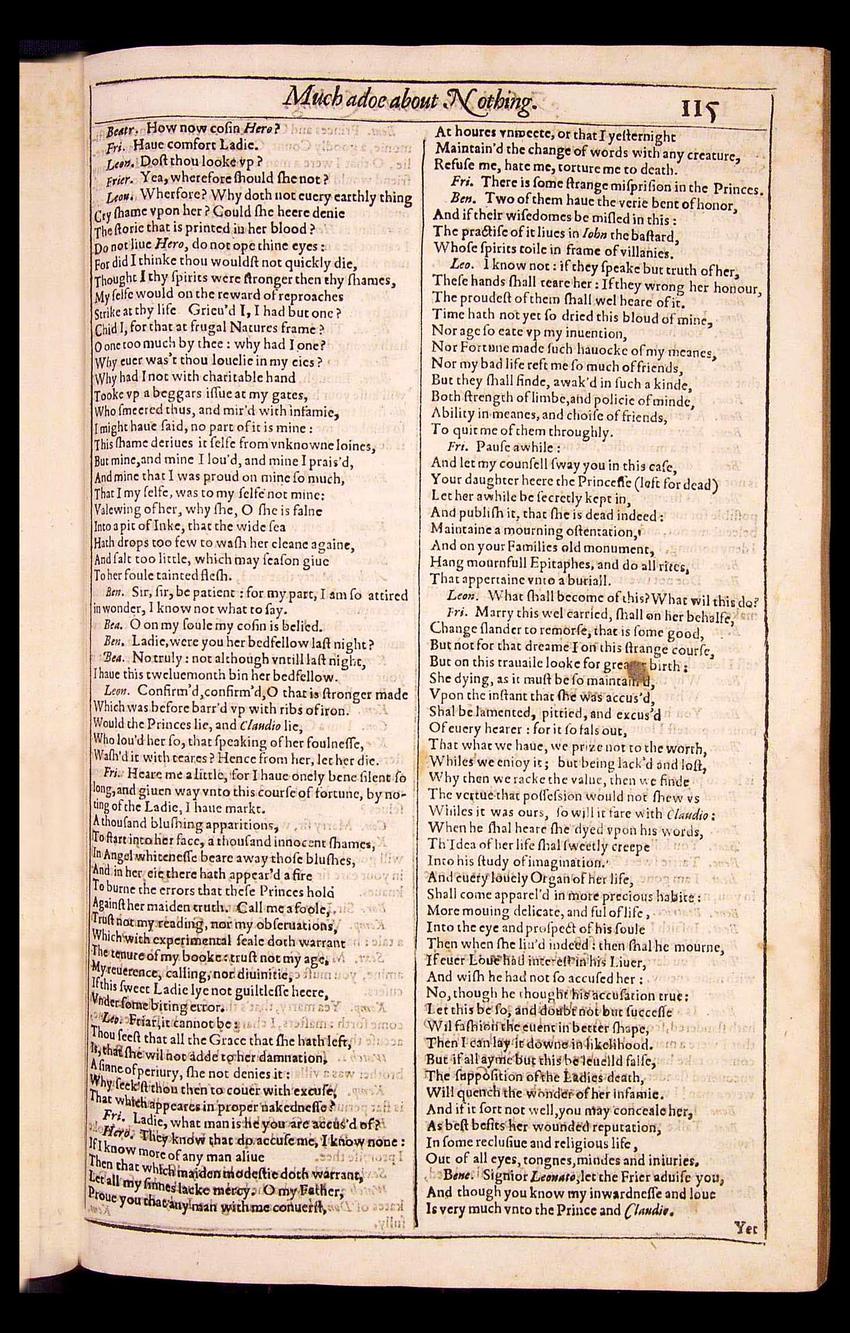 Much adoe about Nothing.
115
Beatr. How now cosin Hero?
Fri. Haue comfort Ladie.
Leon. Dost thou looke vp?
Frier. Yea, wherefore should she not?
Leon. Wherfore? Why doth not euery earthly thing
Cry shame vpon her? Could she heere denie
The storie that is printed in her blood?
Do not liue Hero, do not ope thine eyes:
For did I thinke thou wouldst not quickly die,
Thought I thy spirits were stronger then thy shames,
My selfe would on the reward of reproaches
Strike at thy life Grieu'd I, I had but one?
Chid I, for that at frugal Natures frame?
O one too much by thee: why had I one?
Why euer was't thou louelie in my eies?
Why had I not with charitable hand
Tooke vp a beggars issue at my gates,
Who smeered thus, and mir'd with infamie,
I might haue said, no part of it is mine:
This shame deriues it selfe from vnknowne loines,
But mine, and mine I lou'd, and mine I prais'd,
And mine that I was proud on mine so much,
That I my selfe, was to my selfe not mine:
Valewing of her, why she, O she is falne
Into a pit of Inke, that the wide sea
Hath drops too few to wash her cleane againe,
And salt too little, which may season giue
To her foule tainted flesh.
Ben. Sir, sir, be patient: for my part, I am so attired
in wonder, I know not what to say.
Bea. O on my soule my cosin is belied.
Ben. Ladie, were you her bedfellow last night?
Bea. No truly: not although vntill last night,
I haue this tweluemonth bin her bedfellow.
Leon. Confirm'd, confirm'd, O that is stronger made
Which was before barr'd vp with ribs of iron.
Would the Princes lie, and Claudio lie,
Who lou'd her so, that speaking of her foulnesse,
Wash'd it with teares? Hence from her, let her die.
Fri. Heare me a little, for I haue onely bene silent so
long, and giuen way vnto this course of fortune, by no-
ting of the Ladie, I haue markt.
A thousand blushing apparitions,
To start into her face, a thousand innocent shames,
In Angel whitenesse beare away those blushes,
And in her eie there hath appear'd a fire
To burne the errors that these Princes hold
Against her maiden truth. Call me a foole,
Trust not my reading, nor my obseruations,
Which with experimental seale doth warrant
The tenure of my booke: trust not my age,
My reuerence, calling, nor diuinitie,
If this sweet Ladie lye not guiltlesse heere,
Vnder some biting error.
Leo. Friar, it cannot be:
Thou seest that all the Grace that she hath left,
Is, that she wil not adde to her damnation,
A sinne of periury, she not denies it:
Why seek'st thou then to couer with excuse,
That which appeares in proper nakednesse?
Fri. Ladie, what man is he you are accus'd of?
Hero. They know that do accuse me, I know none:
If I know more of any man aliue
Then that which maiden modestie doth warrant,
Let all my sinnes lacke mercy. O my Father,
Proue you that any man with me conuerst,
At houres vnmeete, or that I yesternight
Maintain'd the change of words with any creature,
Refuse me, hate me, torture me to death.
Fri. There is some strange misprision in the Princes.
Ben. Two of them haue the verie bent of honor,
And if their wisedomes be misled in this:
The practise of it liues in Iohn the bastard,
Whose spirits toile in frame of villanies.
Leo. I know not: if they speake but truth of her,
These hands shall teare her: If they wrong her honour,
The proudest of them shall wel heare of it.
Time hath not yet so dried this bloud of mine,
Nor age so eate vp my inuention,
Nor Fortune made such hauocke of my meanes,
Nor my bad life reft me so much of friends,
But they shall finde, awak'd in such a kinde,
Both strength of limbe, and policie of minde,
Ability in meanes, and choise of friends,
To quit me of them throughly.
Fri. Pause awhile:
And let my counsell sway you in this case,
Your daughter heere the Princesse (left for dead)
Let her awhile be secretly kept in,
And publish it, that she is dead indeed:
Maintaine a mourning ostentation,
And on your Families old monument,
Hang mournfull Epitaphes, and do all rites,
That appertaine vnto a buriall.
Leon. What shall become of this? What wil this do?
Fri. Marry this wel carried, shall on her behalfe,
Change slander to remorse, that is some good,
But not for that dreame I on this strange course,
But on this trauaile looke for greater birth:
She dying, as it must be so maintain'd,
Vpon the instant that she was accus'd,
Shal be lamented, pittied, and excus'd
Of euery hearer: for it so fals out,
That what we haue, we prize not to the worth,
Whiles we enioy it; but being lack'd and lost,
Why then we racke the value, then we finde
The vertue that possession would not shew vs
Whiles it was ours, so will it fare with Claudio:
When he shal heare she dyed vpon his words,
Th'Idea of her life shal sweetly creepe
Into his study of imagination.
And euery louely Organ of her life,
Shall come apparel'd in more precious habite:
More mouing delicate, and ful of life,
Into the eye and prospect of his soule
Then when she liu'd indeed: then shal he mourne,
If euer Loue had interest in his Liuer,
And wish he had not so accused her:
No, though he thought his accusation true:
Let this be so, and doubt not but successe
Wil fashion the euent in better shape,
Then I can lay it downe in likelihood.
But if all ayme but this be leuelld false,
The supposition of the Ladies death,
Will quench the wonder of her infamie.
And if it sort not well, you may conceale her,
As best befits her wounded reputation,
In some reclusiue and religious life,
Out of all eyes, tongnes, mindes and iniuries.
Bene. Signior Leonato, let the Frier aduise you,
And though you know my inwardnesse and loue
Is very much vnto the Prince and Claudio.
Yet